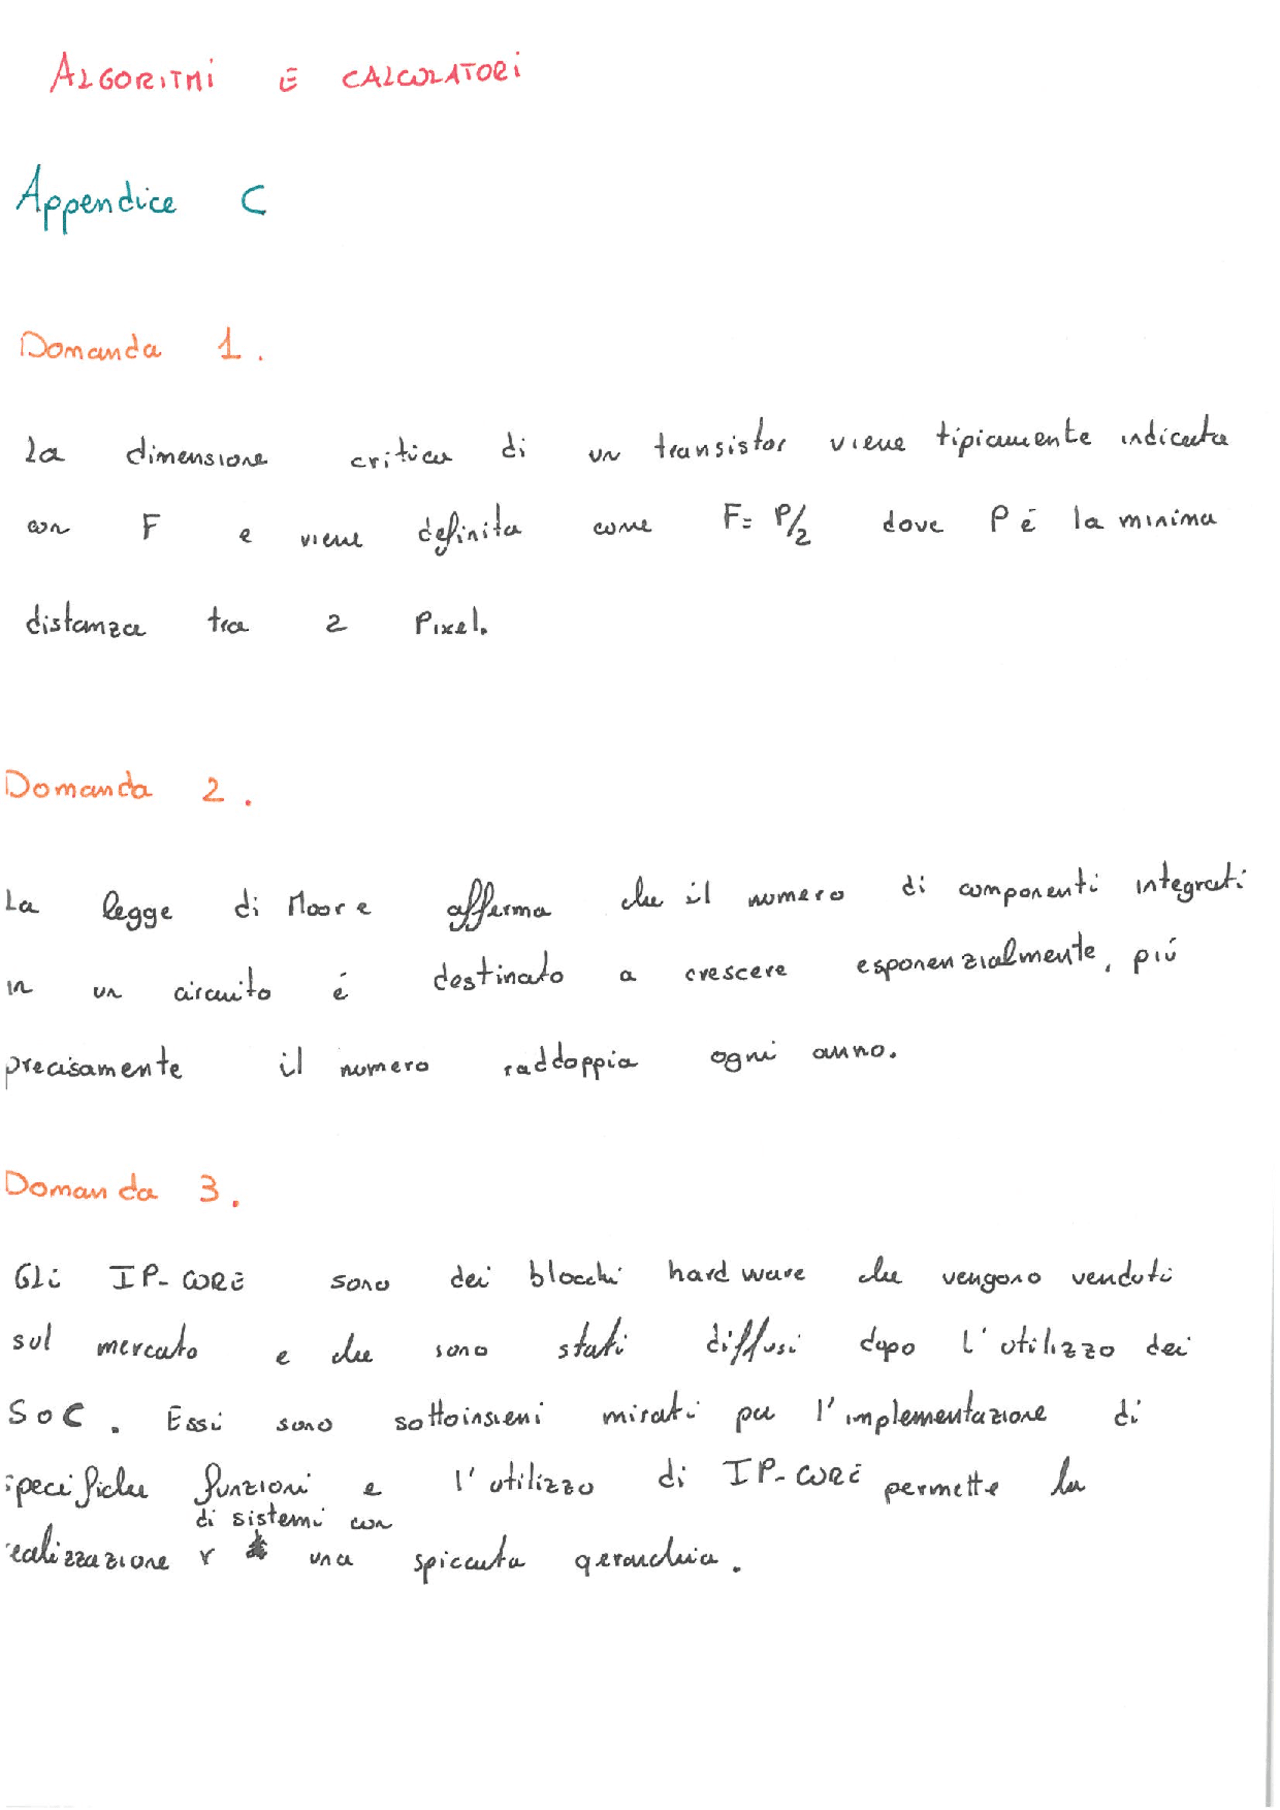 ALGORITMI E CALCOLATORI
Appendice C
Domanda 1.
La dimensione critica di un transistor viene tipicamente indicata
con F e viene definita come F= P/2 dove P é la minima
distanza tra 2 Pixel.
Domanda 2.
La legge di Moore afferma che il numero di componenti integrati
in un circuito é destinato a crescere esponenzialmente, piú
precisamente il numero raddoppia ogni anno.
Domanda 3.
Gli IP-CORE sono dei blocchi hardware che vengono venduti
sul mercato e che sono stati diffusi dopo l'utilizzo dei
SoC. Essi sono sottoinsiemi mirati per l'implementazione di
specifiche funzioni e l'utilizzo di IP-CORE permette la
di sistemi con
realizzazione una spiccata gerarchia.